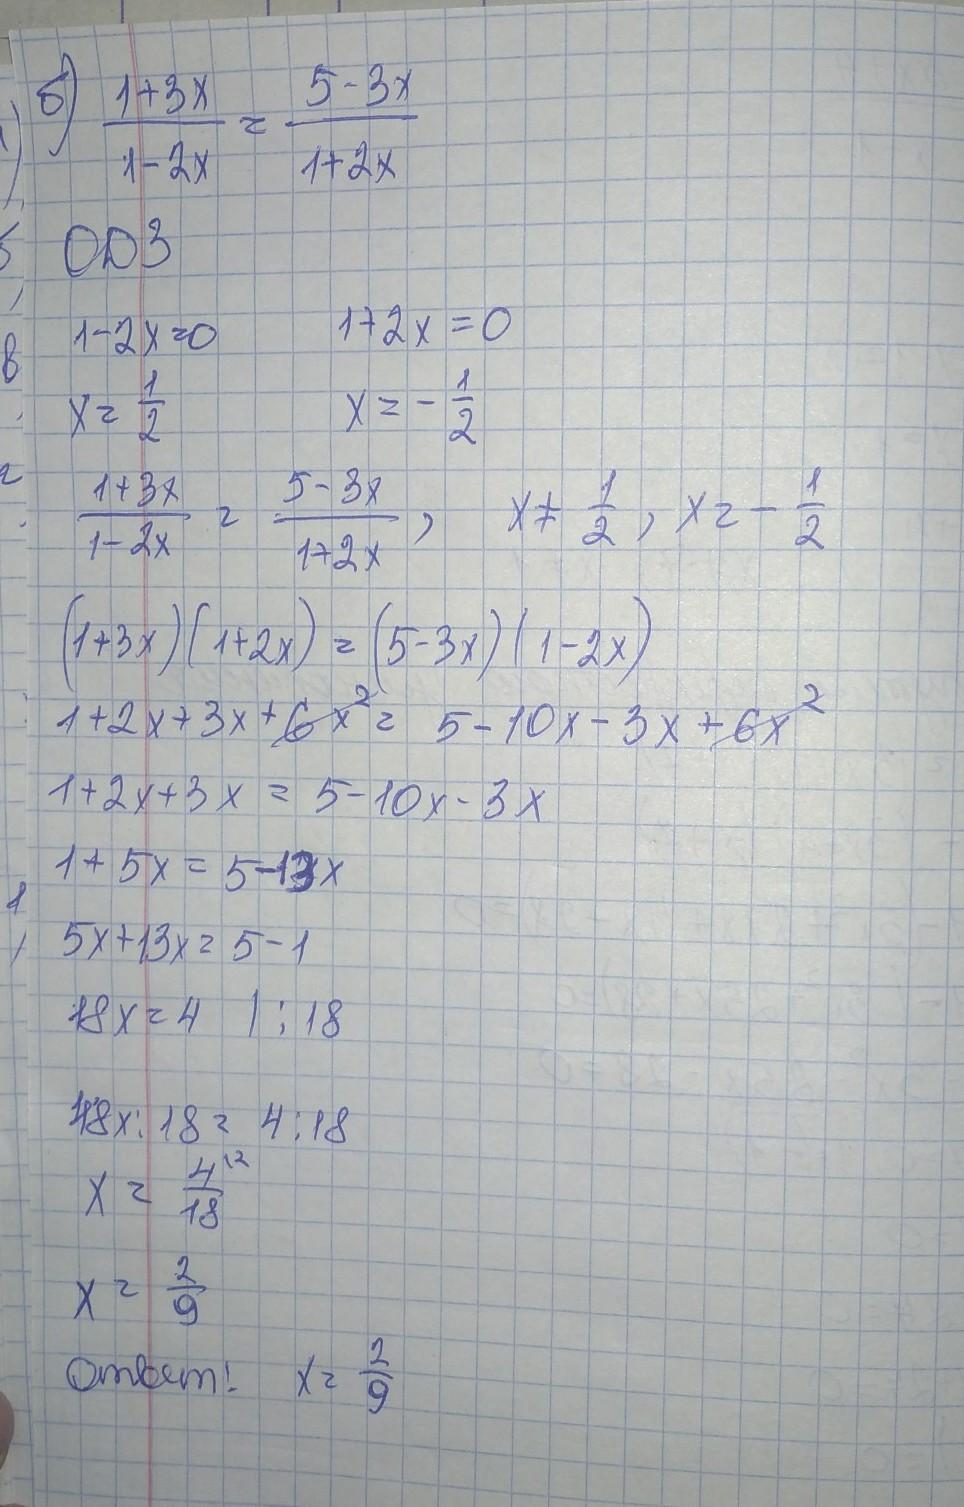 б) \frac{1+3x}{1-2x} = \frac{5-3x}{1+2x}
ОDЗ
1-2x=0 1+2x=0
x=\frac{1}{2} x=-\frac{1}{2}
\frac{1+3x}{1-2x} = \frac{5-3x}{1+2x}, x≠\frac{1}{2}, x=-\frac{1}{2}
(1+3x)(1+2x)=(5-3x)(1-2x)
1+2x+3x+6x²=5-10x-3x+6x²
1+2x+3x=5-10x-3x
1+5x=5-13x
5x+13x=5-1
18x=4 |:18
18x:18=4:18
x=\frac{4}{18}
x=\frac{2}{9}
Ответ: x=\frac{2}{9}